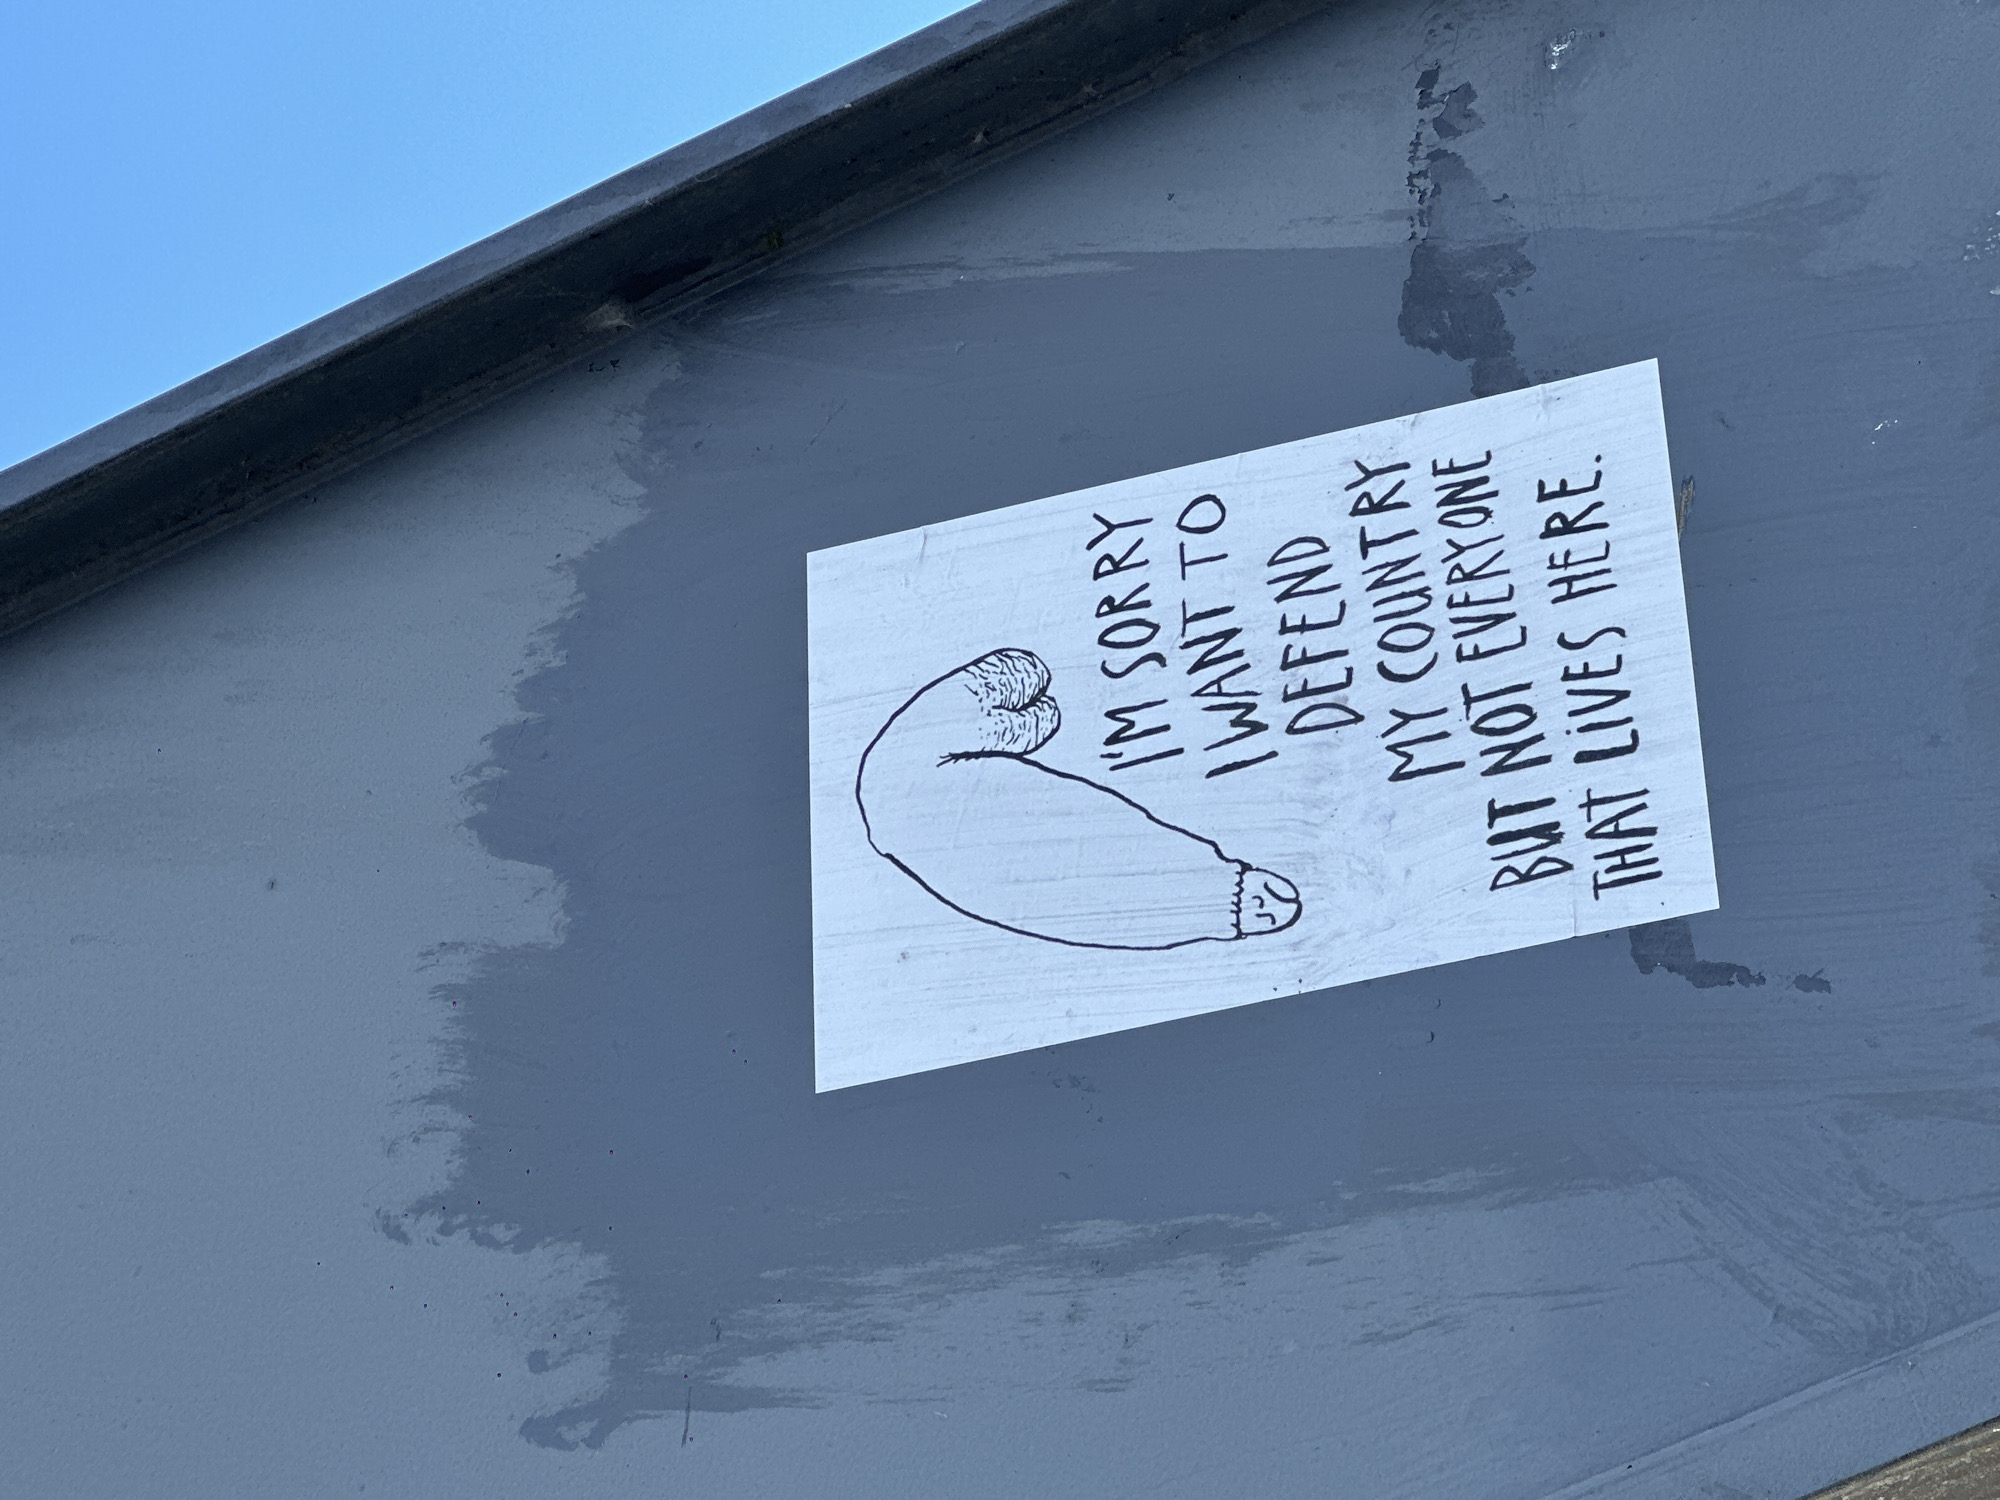 I'M SORRY
I WANT TO
DEFEND
MY COUNTRY
BUT NOT EVERYONE
THAT LIVES HERE.